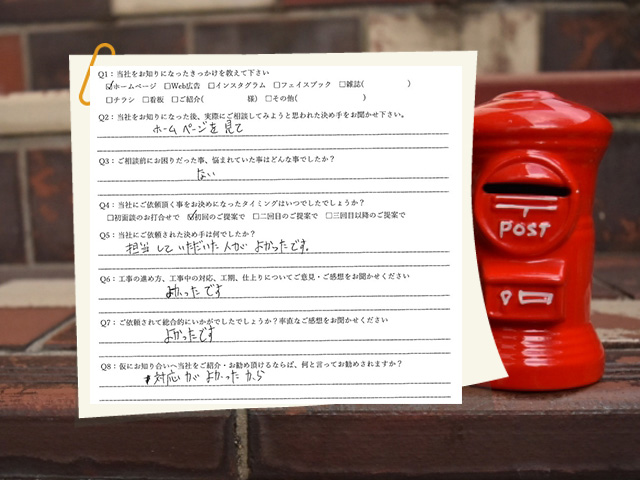 Q1：当社をお知りになったきっかけを教えて下さい
☑ホームページ □Web広告 □インスタグラム □フェイスブック □雑誌( )
□チラシ □看板 □ご紹介( 様) □その他( )
Q2：当社をお知りになった後、実際にご相談してみようと思われた決め手をお聞かせ下さい。
ホームページを見て
Q3：ご相談前にお困りだった事、悩まれていた事はどんな事でしたか？
ない
Q4：当社にご依頼頂く事をお決めになったタイミングはいつでしたでしょうか？
□初面談のお打合せで ☑初回のご提案で □二回目のご提案で □三回目以降のご提案で
Q5：当社にご依頼された決め手は何でしたか？
担当していただいた人がよかったです。
Q6：工事の進め方、工事中の対応、工期、仕上りについてご意見・ご感想をお聞かせください
よかったです
Q7：ご依頼されて総合的にいかがでしたでしょうか？率直なご感想をお聞かせください
よかったです
Q8：仮にお知り合いへ当社をご紹介・お勧め頂けるならば、何と言ってお勧めされますか？
対応がよかったから
POST